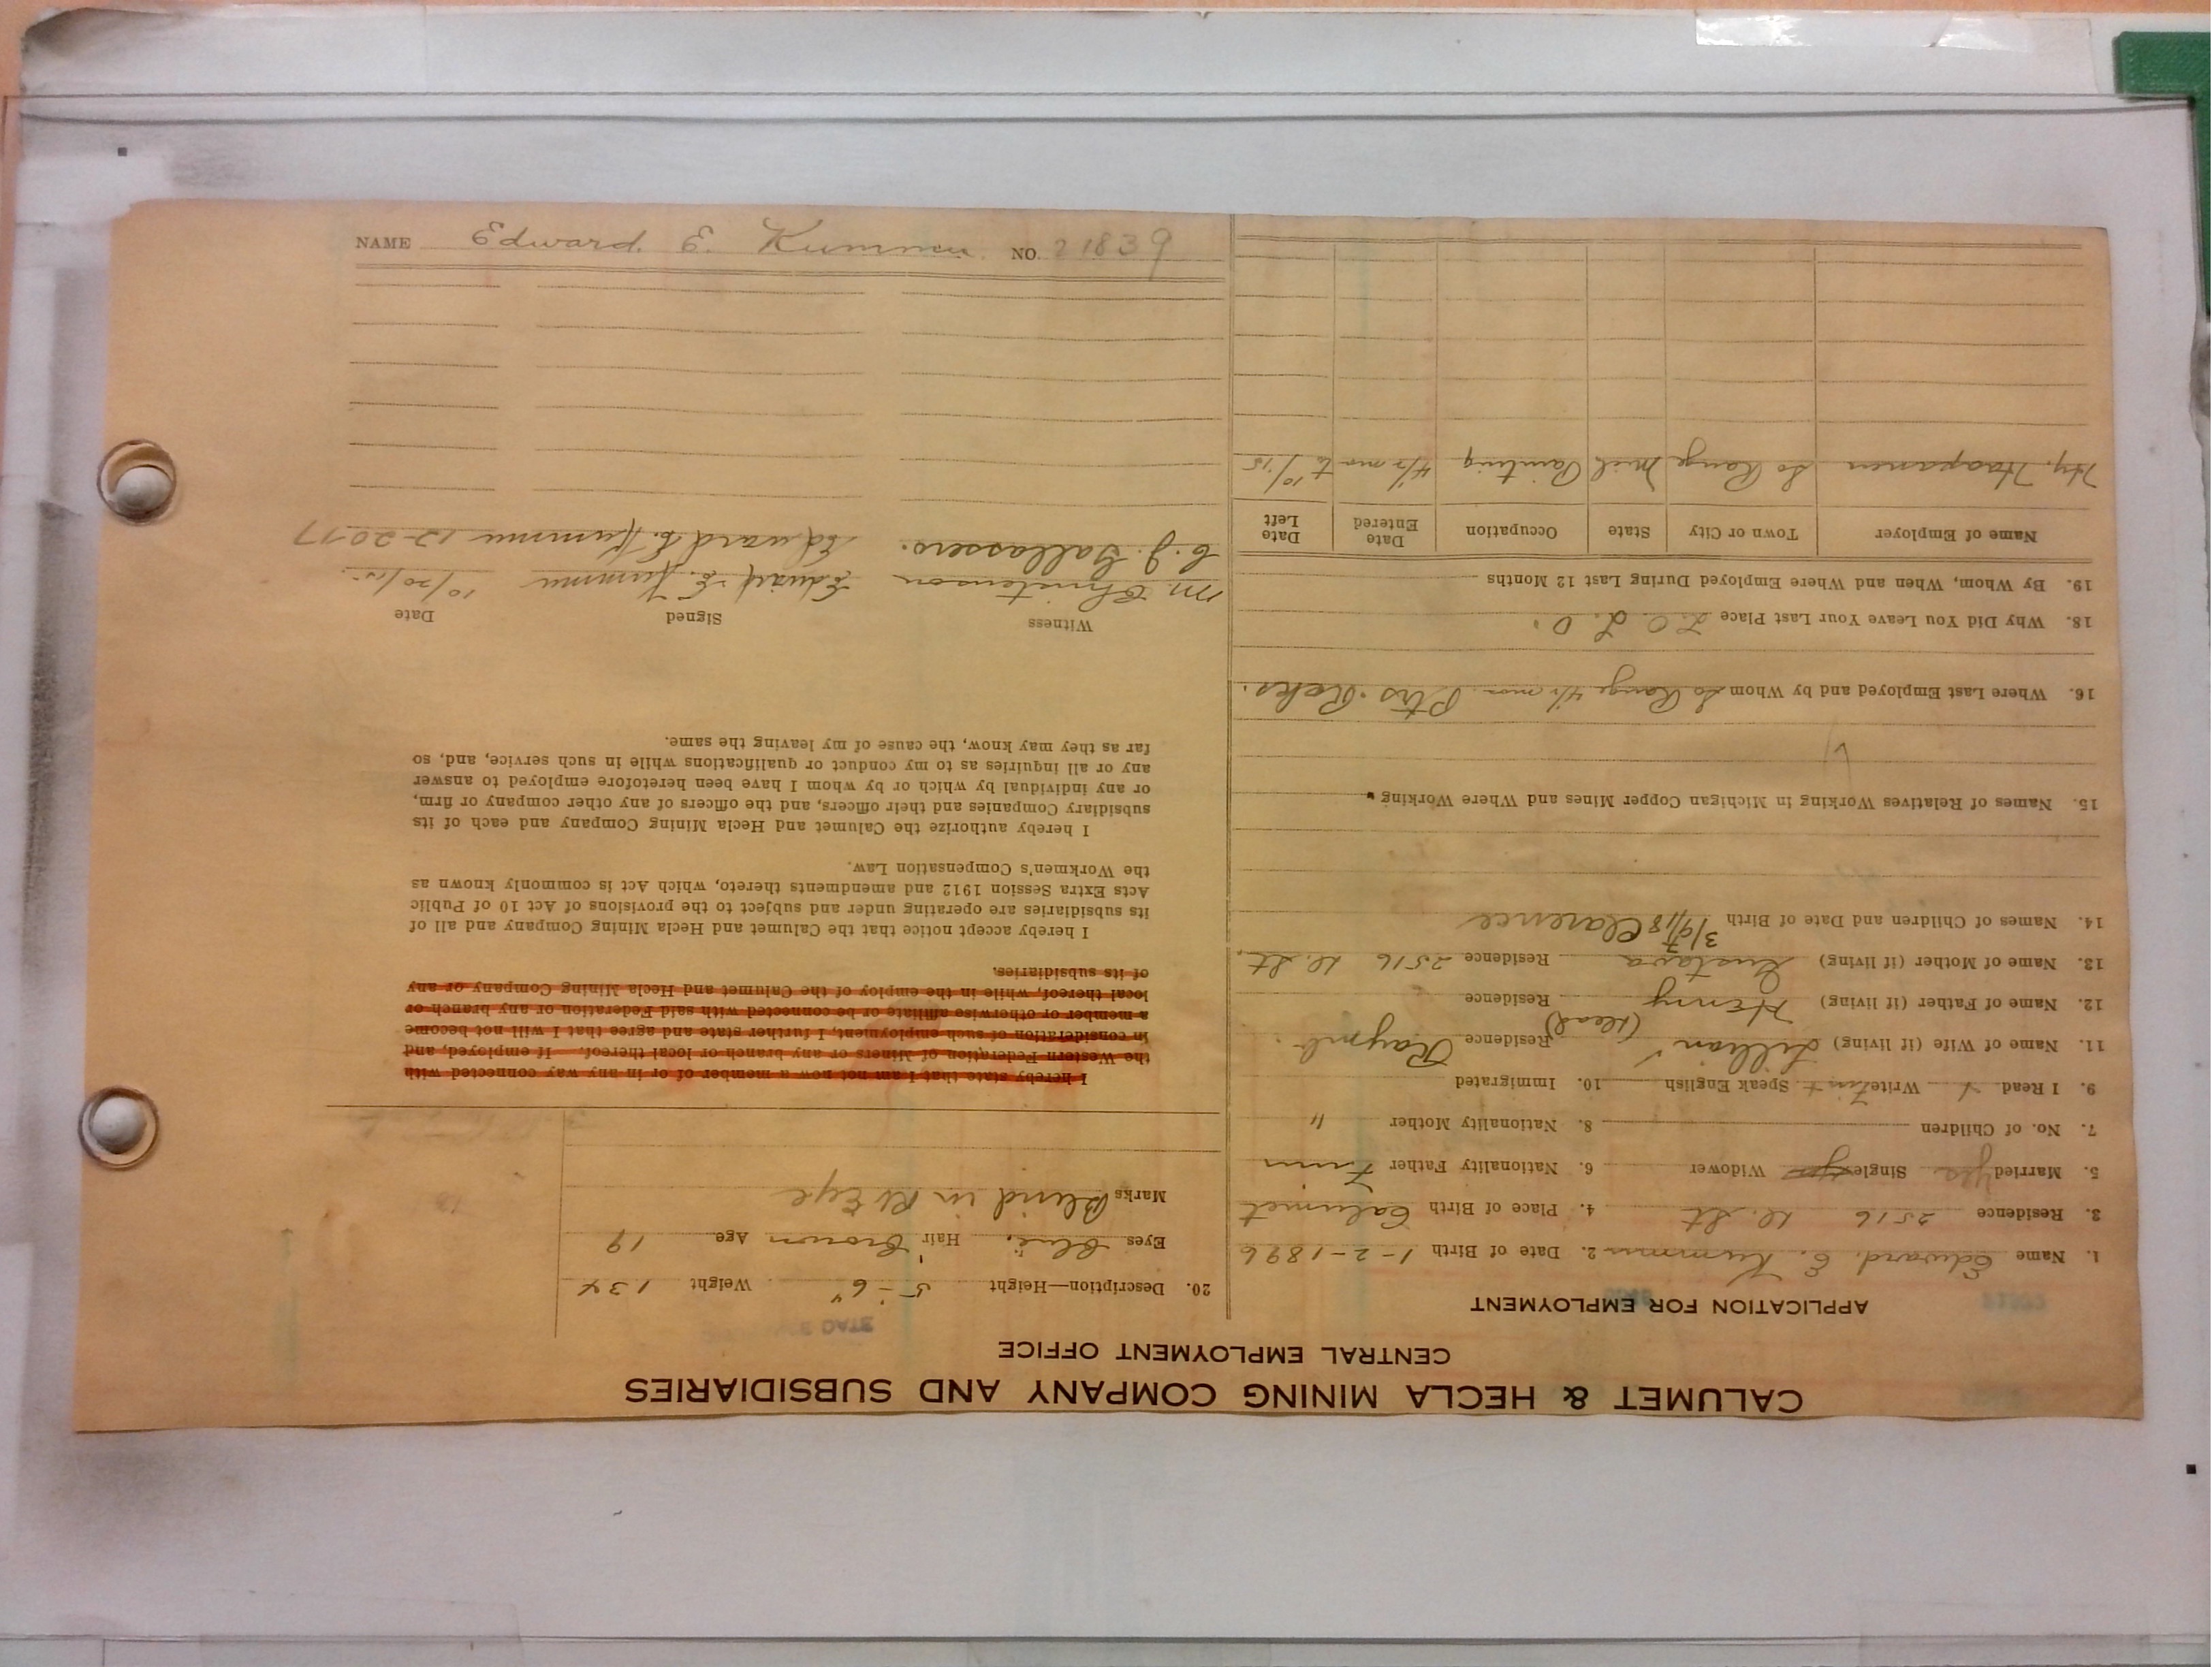 CALUMET & HECLA MINING COMPANY AND SUBSIDIARIES
CENTRAL EMPLOYMENT OFFICE
APPLICATION FOR EMPLOYMENT
1. Name Edward. E. Kummu 2. Date of Birth 1-2-1896
3. Residence 2516 B. St 4. Place of Birth Calumet
5. Married Yes Single Widower 6. Nationality Father Finn
7. No. of Children 8. Nationality Mother "
9. I Read Write Speak English 10. Immigrated
11. Name of Wife (if living) Lillian Residence Raymb.
12. Name of Father (if living) Henry (Dead) Residence
13. Name of Mother (if living) Gustava Residence 2516 B. St.
14. Names of Children and Date of Birth 3/9/18 Clarence
15. Names of Relatives Working in Michigan Copper Mines and Where Working
16. Where Last Employed and by Whom So Range 4½ mos. Ptrs.
18. Why Did You Leave Your Last Place L.O.L.O.
19. By Whom, When and Where Employed During Last 12 Months
Name of Employer Town or City State Occupation Date Entered Date Left
Hy. Haapanen So Range Mich Painting 4½ mos to 10/15
20. Description—Height 5-6" Weight 134
Eyes Blue. Hair Brown Age 19
Marks Blind in Rt Eye
I hereby state that I am not now a member of or in any way connected with
the Western Federation of Miners or any branch or local thereof. If employed, and
in consideration of such employment, I further state and agree that I will not become
a member or otherwise affiliate or be connected with said Federation or any branch or
local thereof, while in the employ of the Calumet and Hecla Mining Company or any
of its subsidiaries.
I hereby accept notice that the Calumet and Hecla Mining Company and all of
its subsidiaries are operating under and subject to the provisions of Act 10 of Public
Acts Extra Session 1912 and amendments thereto, which Act is commonly known as
the Workmen's Compensation Law.
I hereby authorize the Calumet and Hecla Mining Company and each of its
subsidiary Companies and their officers, and the officers of any other company or firm,
or any individual by which or by whom I have been heretofore employed to answer
any or all inquiries as to my conduct or qualifications while in such service, and, so
far as they may know, the cause of my leaving the same.
Witness Signed Date
M. Christenson Edward E. Kummu 10/20/15.
C. J. Gallassero. Edward E. Kummu 12-20-17
NAME Edward. E. Kummu. NO. 21839